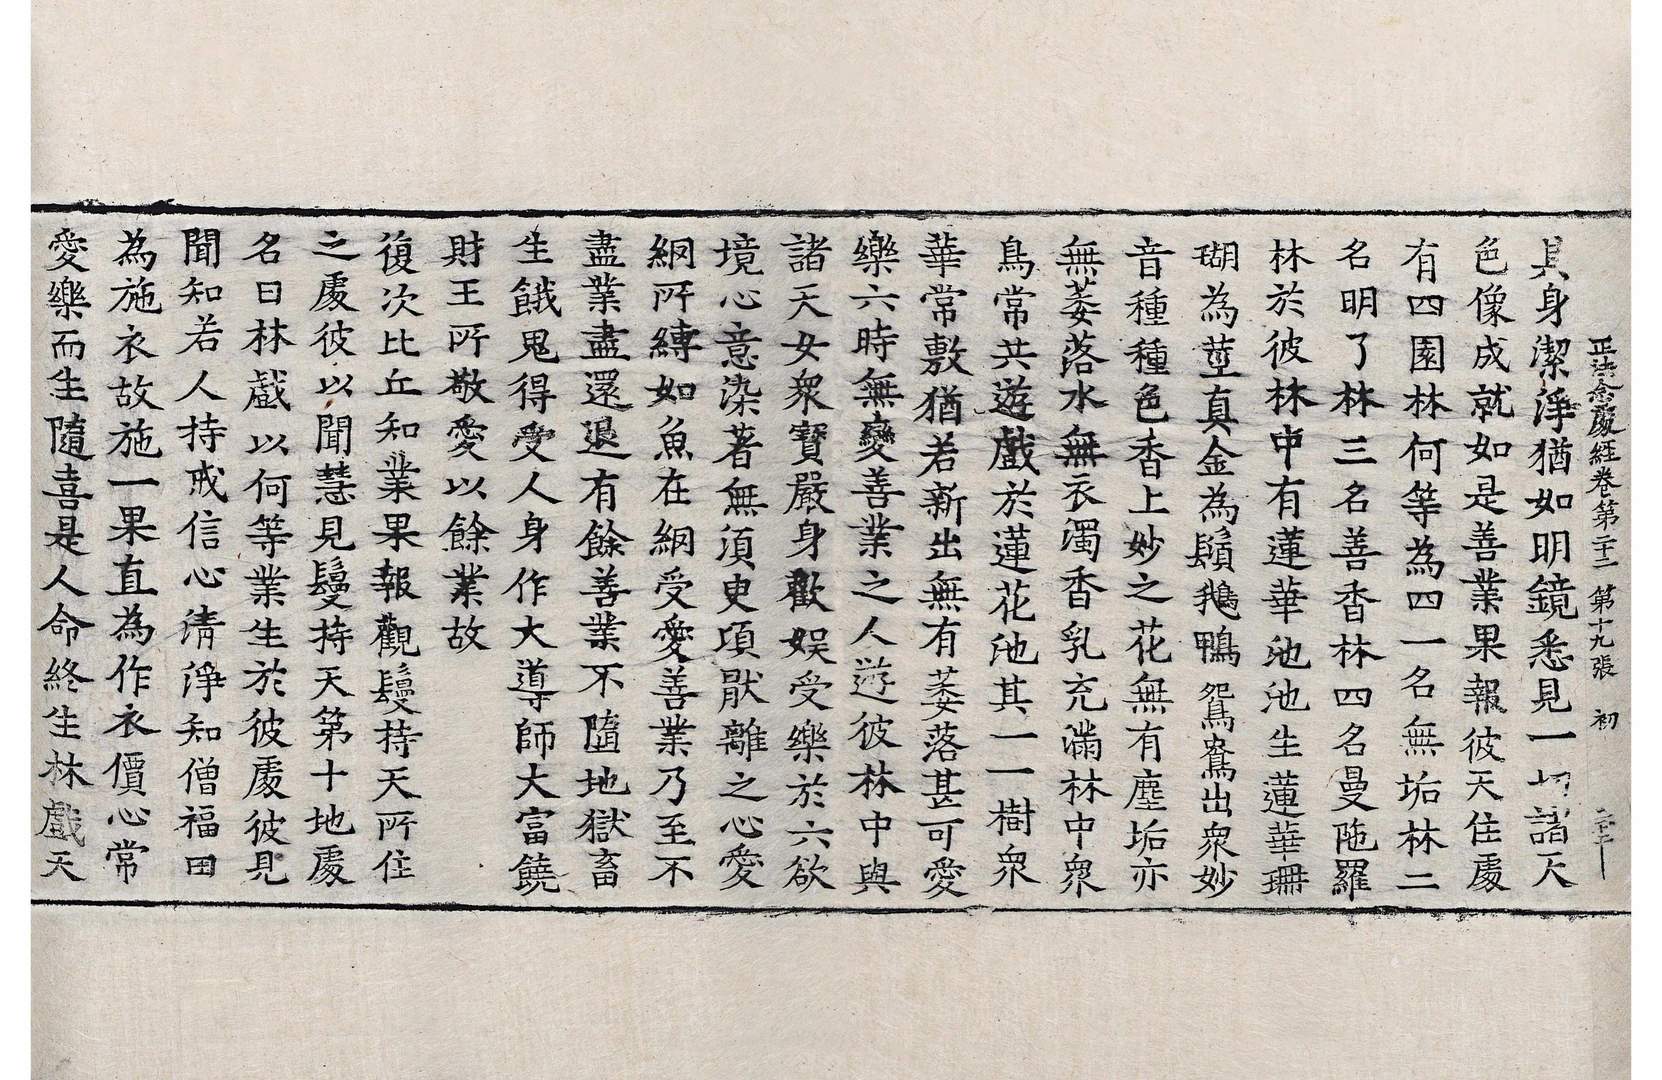 正法念處經卷第二十三　第十九張　初
具身潔淨猶如明鏡悉見一切諸天
色像成就如是善業果報彼天住處
有四園林何等為四一名無垢林二
名明了林三名善香林四名曼陁羅
林於彼林中有蓮華池池生蓮華珊
瑚為莖真金為鬚鵝鴨鴛鴦出眾妙
音種種色香上妙之花無有塵垢亦
無萎落水無衣濁香乳充滿林中眾
鳥常共遊戲於蓮花池其一一樹眾
華常敷猶若新出無有萎落甚可愛
樂六時無變善業之人遊彼林中與
諸天女眾寶嚴身歡娛受樂於六欲
境心意染著無須臾項厭離之心愛
網所縛如魚在網受愛善業乃至不
盡業盡還退有餘善業不隨地獄畜
生餓鬼得受人身作大導師大富饒
財王所敬愛以餘業故
復次比丘知業果報觀鬘持天所住
之處彼以聞慧見鬘持天第十地處
名曰林戲以何等業生於彼處彼見
聞知若人持戒信心清淨知僧福田
為施衣故施一果直為作衣價心常
愛樂而生隨喜是人命終生林戲天